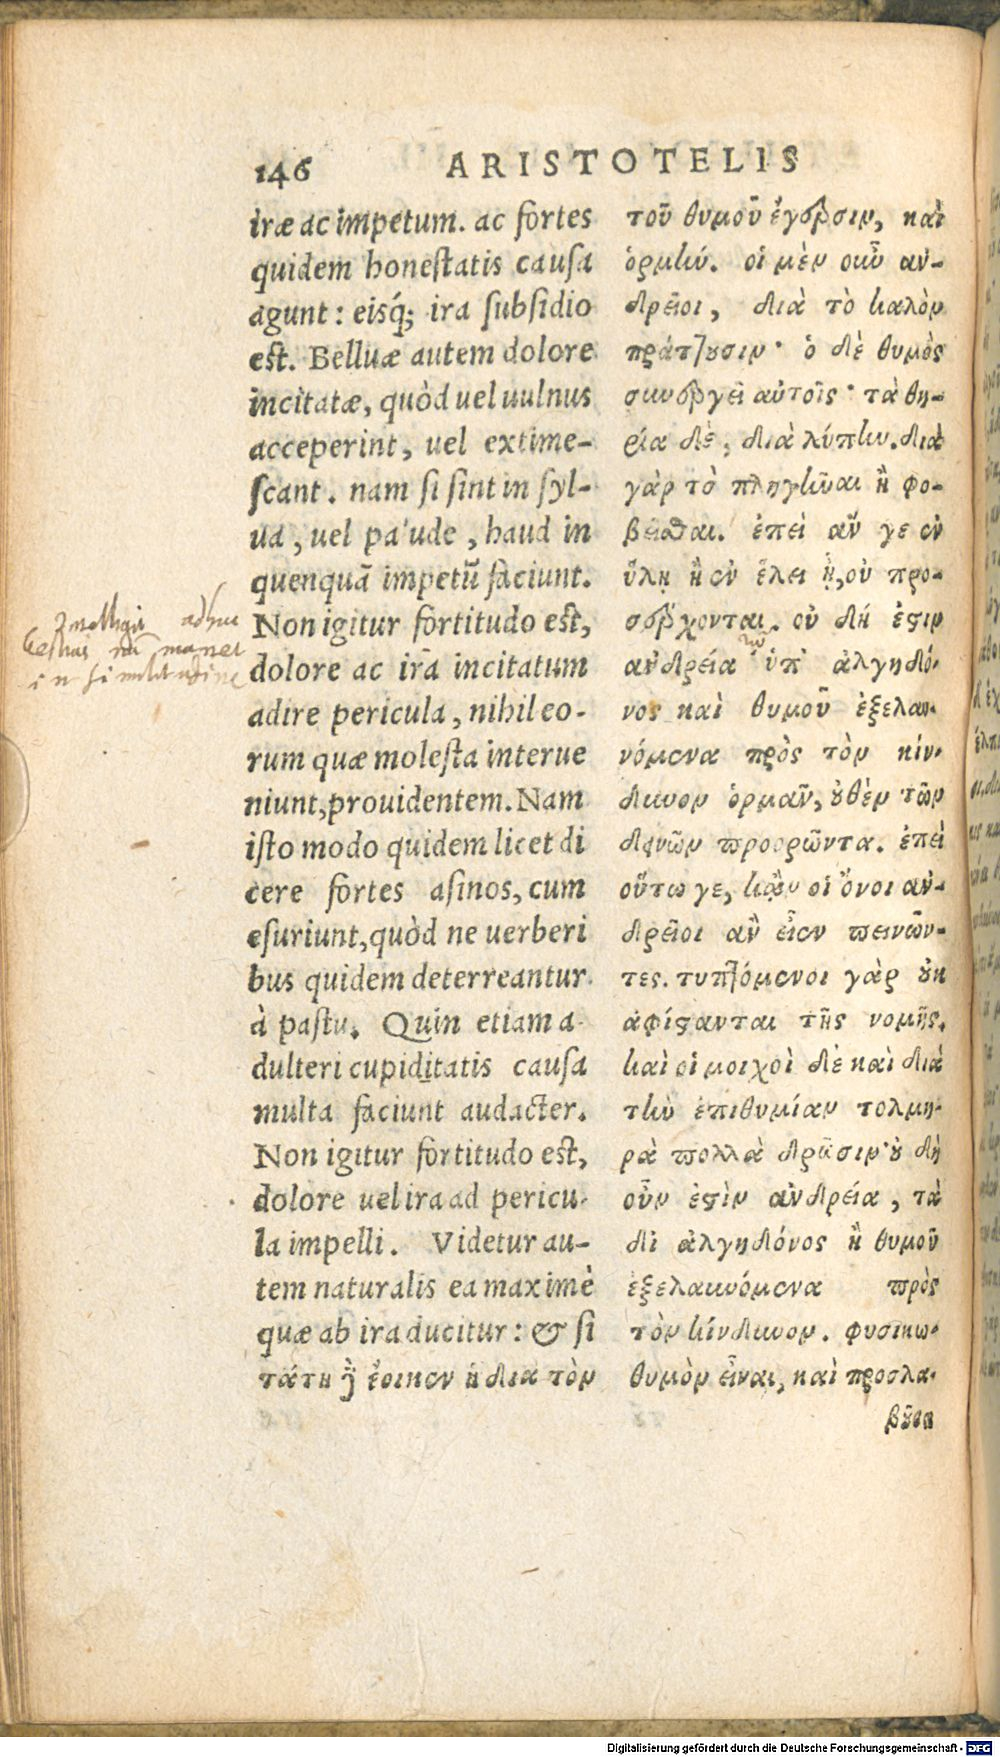 146 ARISTOTELIS
iræ ac impetum. ac fortes
quidem honestatis causa
agunt: eisq́; ira subsidio
est. Belluæ autem dolore
incitatæ, quòd uel uulnus
acceperint, uel extime-
scant. nam si sint in syl-
ua, uel palude, haud in
quenquã impetũ faciunt.
Non igitur fortitudo est,
dolore ac ira incitatum
adire pericula, nihil eo-
rum quæ molesta interue
niunt, prouidentem. Nam
isto modo quidem licet di
cere fortes asinos, cum
esuriunt, quòd ne uerberi
bus quidem deterreantur
à pastu. Quin etiam a-
dulteri cupiditatis causa
multa faciunt audacter.
Non igitur fortitudo est,
dolore uel ira ad pericu-
la impelli. Videtur au-
tem naturalis ea maximè
quæ ab ira ducitur: & si
τάτη δ̀ ἔοικεν ἡ δια τὸν
τοῦ θυμοῦ ἔγερσιν, καὶ
ὁρμήν. οἱ μὲν οὖν ἀν-
δρεῖοι, διὰ τὸ καλὸν
πράττουσιν· ὁ δὲ θυμὸς
συνεργεῖ αὐτοῖς· τὰ θη-
ρία δὲ, διὰ λύπην. διὰ
γὰρ τὸ πληγῆναι ἢ φο-
βεῖσθαι. ἐπεὶ ἄν γε ἐν
ὕλῃ ἢ ἐν ἕλει ᾖ, οὐ προ-
σέρχονται. οὐ δή ἐστιν
ἀνδρεία ὑπ' ἀλγηδό-
νος καὶ θυμοῦ ἐξελαυ-
νόμενα πρὸς τὸν κίν-
δυνον ὁρμᾶν, οὐθὲν τῶν
δεινῶν προορῶντα. ἐπεὶ
οὕτω γε, κἂν οἱ ὄνοι ἀν-
δρεῖοι ἂν εἶεν πεινῶν-
τες. τυπτόμενοι γὰρ οὐκ
ἀφίστανται τῆς νομῆς.
καὶ οἱ μοιχοὶ δὲ καὶ διὰ
τὴν ἐπιθυμίαν τολμη-
ρὰ πολλὰ δρῶσιν· οὐ δή
οὖν ἐστὶν ἀνδρεία, τὰ
δι ἀλγηδόνος ἢ θυμοῦ
ἐξελαυνόμενα πρὸς
τὸν κίνδυνον. φυσικω-
θυμὸν εἶναι, καὶ προσλα-
βοῦσα
adhuc
manet
in similitudine
Digitalisierung gefördert durch die Deutsche Forschungsgemeinschaft - DFG